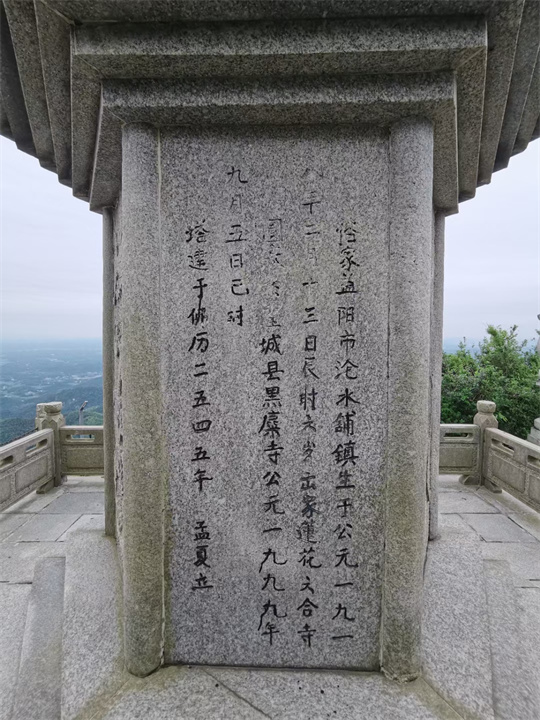 俗家益阳市沧水舖鎮生于公元一九一
八年二月十三日辰时六岁出家莲花六合寺
圆寂于望城县黑麋寺公元一九九九年
九月五日巳时
塔建于佛历二五四五年 孟夏立